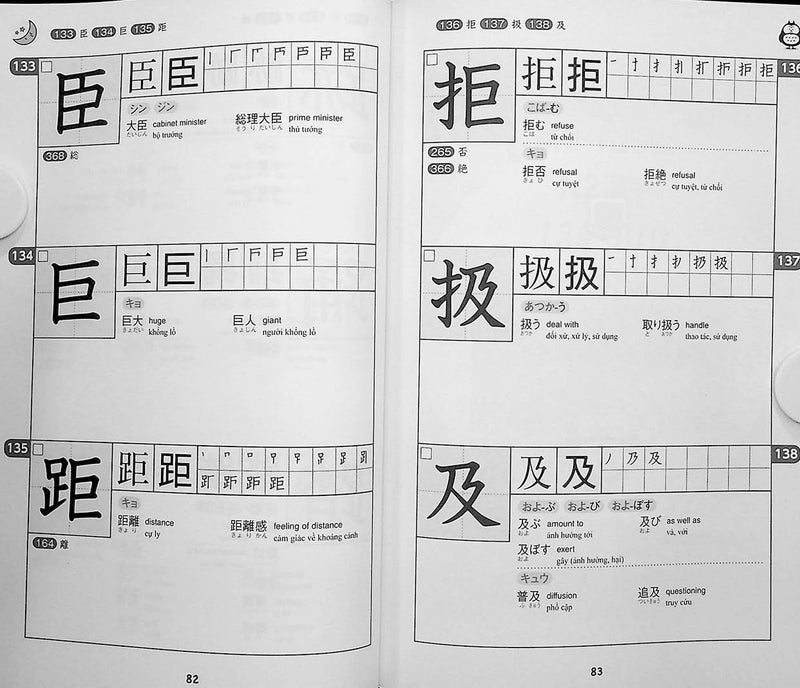 133 臣 134 巨 135 距
133
臣 臣 臣
シン ジン
大臣 cabinet minister 総理大臣 prime minister
だいじん bộ trưởng そうりだいじん thủ tướng
368 総
134
巨 巨 巨
キョ
巨大 huge 巨人 giant
きょだい khổng lồ きょじん người khổng lồ
135
距 距 距
キョ
距離 distance 距離感 feeling of distance
きょり cự ly きょりかん cảm giác về khoảng cách
164 離
82
136 拒 137 扱 138 及
136
拒 拒 拒
こば-む
拒む refuse
こば từ chối
265 否
キョ
366 絶
拒否 refusal 拒絶 refusal
きょひ cự tuyệt きょぜつ cự tuyệt, từ chối
137
扱 扱 扱
あつか-う
扱う deal with 取り扱う handle
あつか đối xử, xử lý, sử dụng と あつか thao tác, sử dụng
138
及 及 及
およ-ぶ およ-び およ-ぼす
及ぶ amount to 及び as well as
およ ảnh hưởng tới およ và, với
及ぼす exert
およ gây (ảnh hưởng, hại)
キュウ
普及 diffusion 追及 questioning
ふきゅう phổ cập ついきゅう truy cứu
83